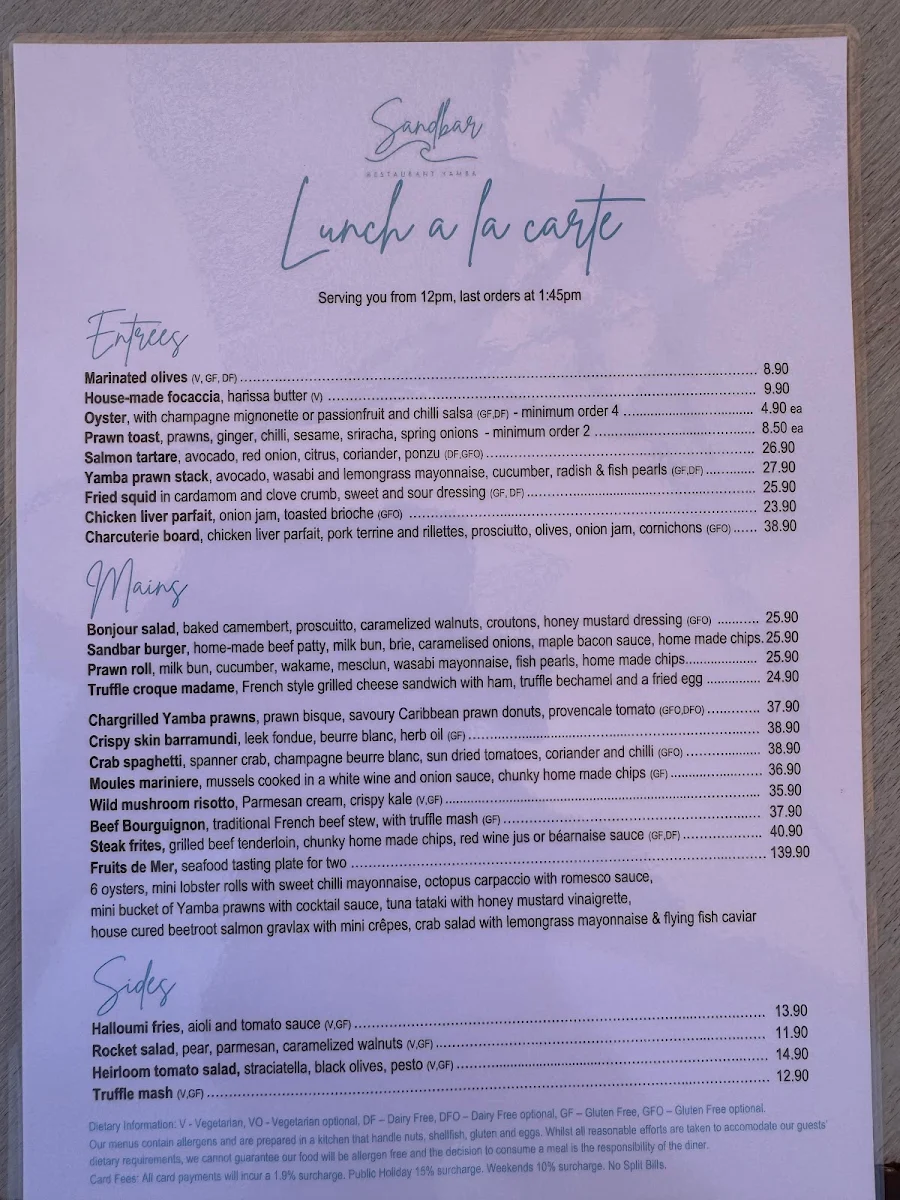 Sandbar
RESTAURANT YAMBA
Lunch a la carte
Serving you from 12pm, last orders at 1:45pm
Entrees
Marinated olives (V, GF, DF) 8.90
House-made focaccia, harissa butter (V) 9.90
Oyster, with champagne mignonette or passionfruit and chilli salsa (GF,DF) - minimum order 4 4.90 ea
Prawn toast, prawns, ginger, chilli, sesame, sriracha, spring onions - minimum order 2 8.50 ea
Salmon tartare, avocado, red onion, citrus, coriander, ponzu (DF,GFO) 26.90
Yamba prawn stack, avocado, wasabi and lemongrass mayonnaise, cucumber, radish & fish pearls (GF,DF) 27.90
Fried squid in cardamom and clove crumb, sweet and sour dressing (GF, DF) 25.90
Chicken liver parfait, onion jam, toasted brioche (GFO) 23.90
Charcuterie board, chicken liver parfait, pork terrine and rillettes, prosciutto, olives, onion jam, cornichons (GFO) 38.90
Mains
Bonjour salad, baked camembert, proscuitto, caramelized walnuts, croutons, honey mustard dressing (GFO) 25.90
Sandbar burger, home-made beef patty, milk bun, brie, caramelised onions, maple bacon sauce, home made chips. 25.90
Prawn roll, milk bun, cucumber, wakame, mesclun, wasabi mayonnaise, fish pearls, home made chips 25.90
Truffle croque madame, French style grilled cheese sandwich with ham, truffle bechamel and a fried egg 24.90
Chargrilled Yamba prawns, prawn bisque, savoury Caribbean prawn donuts, provencale tomato (GFO,DFO) 37.90
Crispy skin barramundi, leek fondue, beurre blanc, herb oil (GF) 38.90
Crab spaghetti, spanner crab, champagne beurre blanc, sun dried tomatoes, coriander and chilli (GFO) 38.90
Moules mariniere, mussels cooked in a white wine and onion sauce, chunky home made chips (GF) 36.90
Wild mushroom risotto, Parmesan cream, crispy kale (V,GF) 35.90
Beef Bourguignon, traditional French beef stew, with truffle mash (GF) 37.90
Steak frites, grilled beef tenderloin, chunky home made chips, red wine jus or béarnaise sauce (GF,DF) 40.90
Fruits de Mer, seafood tasting plate for two 139.90
6 oysters, mini lobster rolls with sweet chilli mayonnaise, octopus carpaccio with romesco sauce,
mini bucket of Yamba prawns with cocktail sauce, tuna tataki with honey mustard vinaigrette,
house cured beetroot salmon gravlax with mini crêpes, crab salad with lemongrass mayonnaise & flying fish caviar
Sides
Halloumi fries, aioli and tomato sauce (V,GF) 13.90
Rocket salad, pear, parmesan, caramelized walnuts (V,GF) 11.90
Heirloom tomato salad, straciatella, black olives, pesto (V,GF) 14.90
Truffle mash (V,GF) 12.90
Dietary Information: V - Vegetarian, VO - Vegetarian optional, DF – Dairy Free, DFO – Dairy Free optional, GF – Gluten Free, GFO – Gluten Free optional.
Our menus contain allergens and are prepared in a kitchen that handle nuts, shellfish, gluten and eggs. Whilst all reasonable efforts are taken to accomodate our guests'
dietary requirements, we cannot guarantee our food will be allergen free and the decision to consume a meal is the responsibility of the diner.
Card Fees: All card payments will incur a 1.9% surcharge. Public Holiday 15% surcharge. Weekends 10% surcharge. No Split Bills.